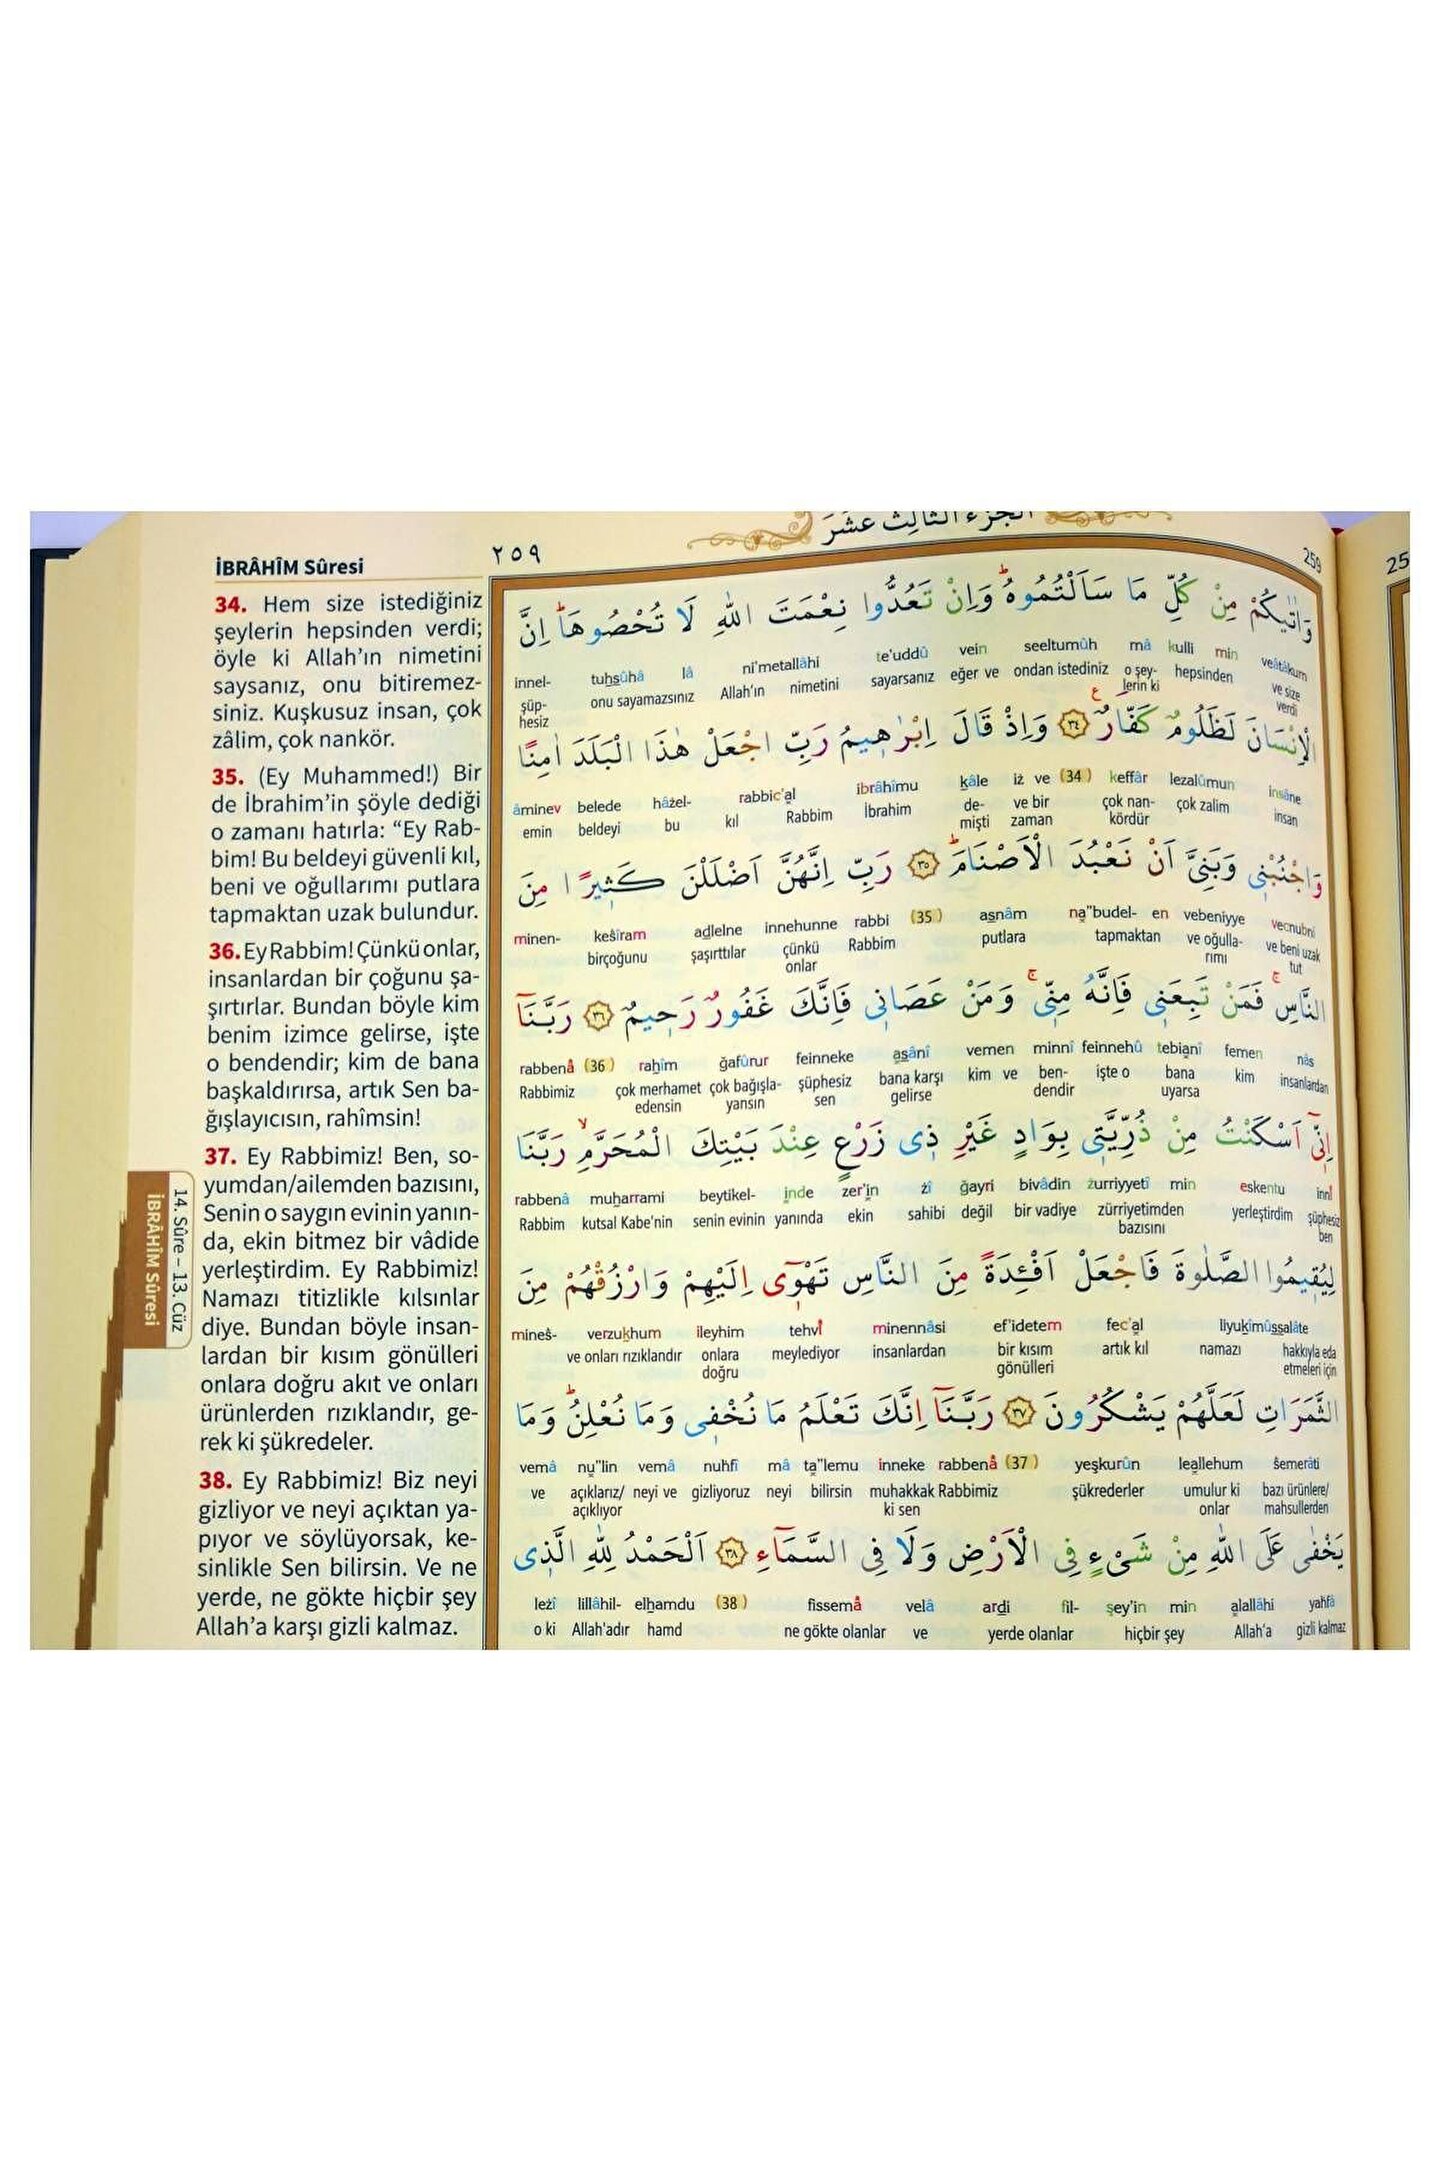 الجزء الثالث عشر
İBRÂHÎM Sûresi
٢٥٩
259
25
34. Hem size istediğiniz
şeylerin hepsinden verdi;
öyle ki Allah’ın nimetini
saysanız, onu bitiremez-
siniz. Kuşkusuz insan, çok
zâlim, çok nankör.
35. (Ey Muhammed!) Bir
de İbrahim’in şöyle dediği
o zamanı hatırla: “Ey Rab-
bim! Bu beldeyi güvenli kıl,
beni ve oğullarımı putlara
tapmaktan uzak bulundur.
36. Ey Rabbim! Çünkü onlar,
insanlardan bir çoğunu şa-
şırtırlar. Bundan böyle kim
benim izimce gelirse, işte
o bendendir; kim de bana
başkaldırırsa, artık Sen ba-
ğışlayıcısın, rahîmsin!
37. Ey Rabbimiz! Ben, so-
yumdan/ailemden bazısını,
Senin o saygın evinin yanın-
da, ekin bitmez bir vâdide
yerleştirdim. Ey Rabbimiz!
Namazı titizlikle kılsınlar
diye. Bundan böyle insan-
lardan bir kısım gönülleri
onlara doğru akıt ve onları
ürünlerden rızıklandır, ge-
rek ki şükredeler.
38. Ey Rabbimiz! Biz neyi
gizliyor ve neyi açıktan ya-
pıyor ve söylüyorsak, ke-
sinlikle Sen bilirsin. Ve ne
yerde, ne gökte hiçbir şey
Allah’a karşı gizli kalmaz.
14. Sûre – 13. Cüz
İBRÂHÎM Sûresi
وَاٰتٰيكُمْ مِنْ كُلِّ مَا سَاَلْتُمُوهُۜ وَاِنْ تَعُدُّوا نِعْمَتَ اللّٰهِ لَا تُحْصُوهَاۜ اِنَّ
innel- tuhsûhâ lâ ni’metallâhi te’uddû vein seeltumûh mâ kulli min veâtâkum
şüp- onu sayamazsınız Allah’ın nimetini sayarsanız eğer ve ondan istediniz o şey- hepsinden ve size
hesiz lerin ki verdi
الْاِنْسَانَ لَظَلُومٌ كَفَّارٌ ﴿٣٤﴾ وَاِذْ قَالَ اِبْرٰه۪يمُ رَبِّ اجْعَلْ هٰذَا الْبَلَدَ اٰمِنًا
âminev belede hâzel- rabbic’al ibrâhîmu kâle iż ve (34) keffâr lezalûmun insâne
emin beldeyi bu kıl Rabbim İbrahim de- ve bir çok nan- çok zalim insan
mişti zaman kördür
وَاجْنُبْن۪ي وَبَنِيَّ اَنْ نَعْبُدَ الْاَصْنَامَۜ ﴿٣٥﴾ رَبِّ اِنَّهُنَّ اَضْلَلْنَ كَث۪يرًا مِنَ
minen- keŝîram adlelne innehunne rabbi (35) asnâm na"budel- en vebeniyye vecnubnî
birçoğunu şaşırttılar çünkü Rabbim putlara tapmaktan ve oğulla- ve beni uzak
onlar rımı tut
النَّاسِۚ فَمَنْ تَبِعَن۪ي فَاِنَّهُ مِنّ۪يۚ وَمَنْ عَصَان۪ي فَاِنَّكَ غَفُورٌ رَح۪يمٌ ﴿٣٦﴾ رَبَّنَٓا
rabbenâ (36) rahîm ğafûrur feinneke asânî vemen minnî feinnehû tebianî femen nâs
Rabbimiz çok merhamet çok bağışla- şüphesiz bana karşı kim ve ben- işte o bana kim insanlardan
edensin yansın sen gelirse dendir uyarsa
اِنّ۪ٓي اَسْكَنْتُ مِنْ ذُرِّيَّت۪ي بِوَادٍ غَيْرِ ذ۪ي زَرْعٍ عِنْدَ بَيْتِكَ الْمُحَرَّمِۙ رَبَّنَا
rabbenâ muharrami beytikel- inde zer’in żî ğayri bivâdin żurriyyetî min eskentu innî
Rabbim kutsal Kabe’nin senin evinin yanında ekin sahibi değil bir vadiye zürriyetimden yerleştirdim şüphesiz
bazısını ben
لِيُق۪يمُوا الصَّلٰوةَ فَاجْعَلْ اَفْـِٔدَةً مِنَ النَّاسِ تَهْو۪ٓي اِلَيْهِمْ وَارْزُقْهُمْ مِنَ
mineŝ- verzukhum ileyhim tehvî minennâsi ef’idetem fec’al liyukîmûssalâte
ve onları rızıklandır onlara meylediyor insanlardan bir kısım artık kıl namazı hakkıyla eda
doğru gönülleri etmeleri için
الثَّمَرَاتِ لَعَلَّهُمْ يَشْكُرُونَ ﴿٣٧﴾ رَبَّنَٓا اِنَّكَ تَعْلَمُ مَا نُخْف۪ي وَمَا نُعْلِنُۜ وَمَا
vemâ nu"lin vemâ nuhfî mâ ta"lemu inneke rabbenâ (37) yeşkurûn leallehum ŝemerâti
ve açıklarız/ neyi ve gizliyoruz neyi bilirsin muhakkak Rabbimiz şükrederler umulur ki bazı ürünlere/
açıklıyor ki sen onlar mahsullerden
يَخْفٰى عَلَى اللّٰهِ مِنْ شَيْءٍ فِي الْاَرْضِ وَلَا فِي السَّمَٓاءِ ﴿٣٨﴾ اَلْحَمْدُ لِلّٰهِ الَّذ۪ي
leżî lillâhil- elhamdu (38) fissemâ velâ ardi fil- şey’in min alallâhi yahfâ
o ki Allah’adır hamd ne gökte olanlar ve yerde olanlar hiçbir şey Allah’a gizli kalmaz